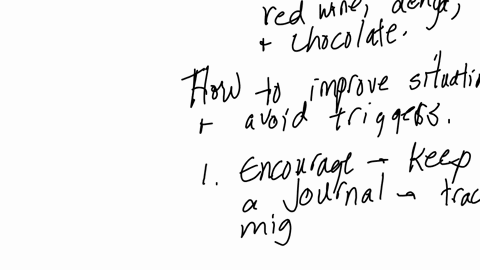 red wine,
+ chocolate.
How to improve situati
+ avoid triggers.
1. Encourage → Keep
a Journal → trac
mig